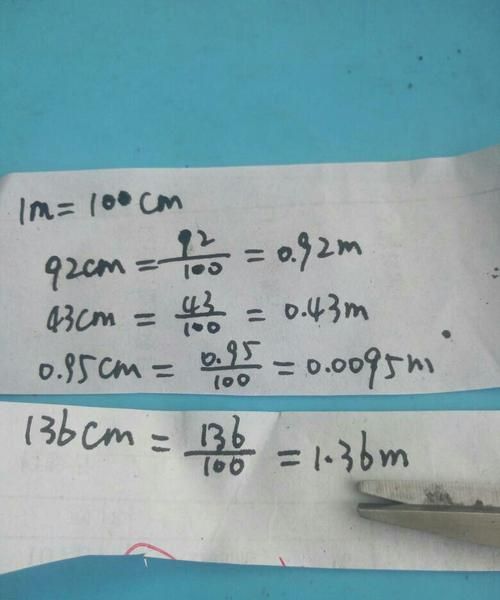 1m = 100cm
92cm = 92/100 = 0.92m
43cm = 43/100 = 0.43m
0.95cm = 0.95/100 = 0.0095m
136cm = 136/100 = 1.36m